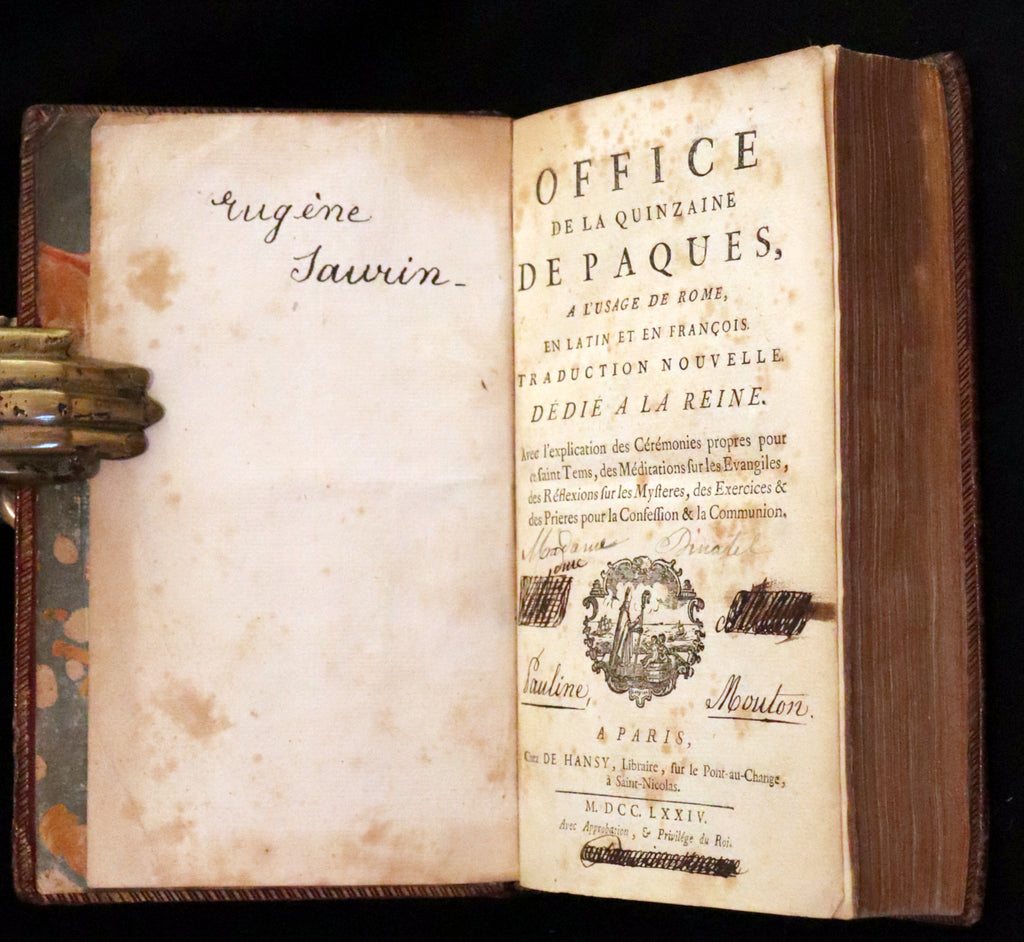 Eugène
Saurin-
OFFICE
DE LA QUINZAINE
DE PAQUES,
A L'USAGE DE ROME,
EN LATIN ET EN FRANÇOIS.
TRADUCTION NOUVELLE.
DÉDIÉ A LA REINE.
Avec l'explication des Cérémonies propres pour
ce saint Tems, des Méditations sur les Evangiles,
des Réflexions sur les Mysteres, des Exercices &
des Prieres pour la Confession & la Communion.
Madame
Pauline, Mouton.
A PARIS,
Chez DE HANSY, Libraire, sur le Pont-au-Change,
à Saint-Nicolas.
M. DCC. LXXIV.
Avec Approbation, & Privilége du Roi.